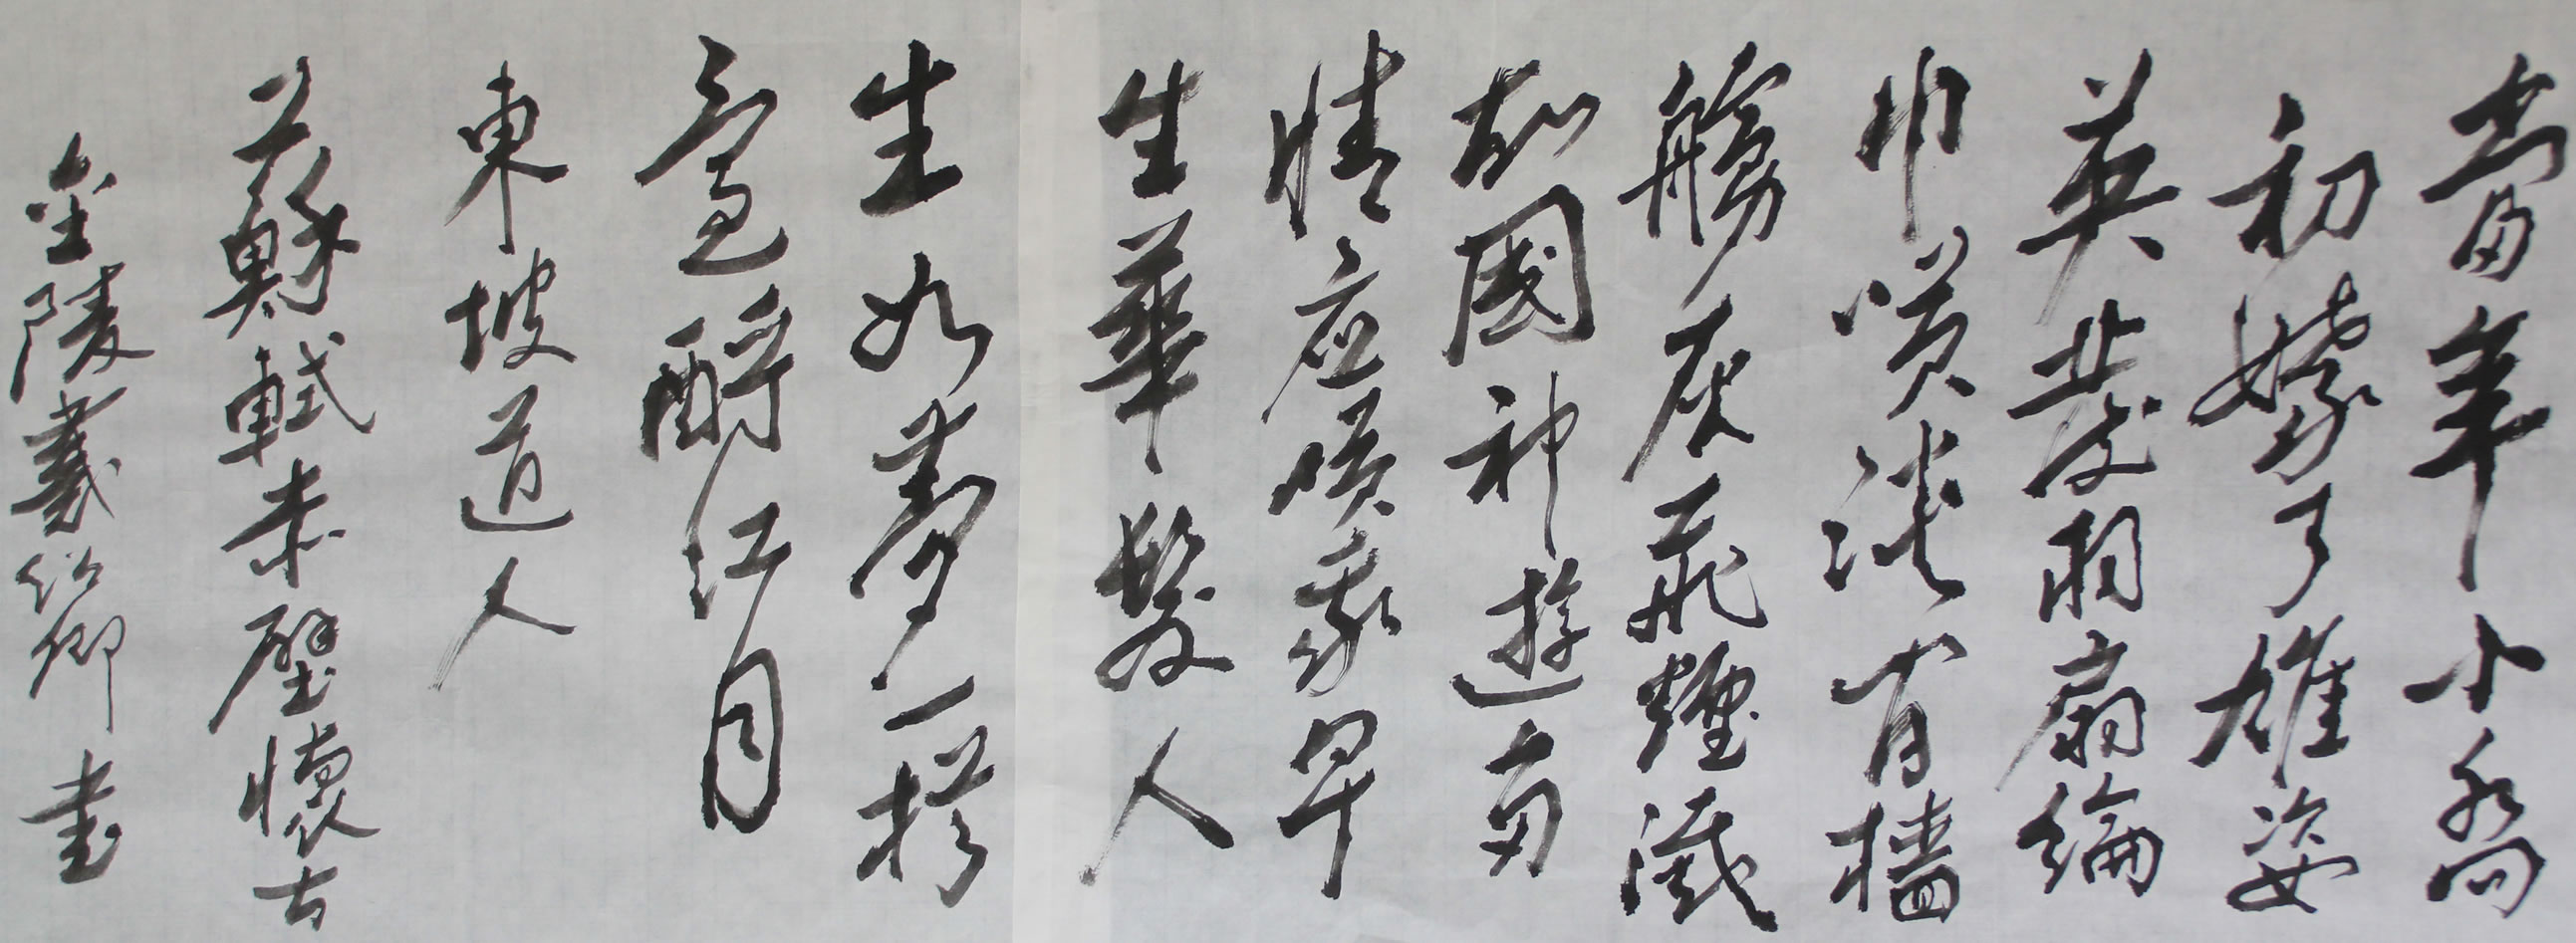 當年小喬
初嫁了雄姿
英發羽扇綸
巾笑談間檣
艣灰飛煙滅
故國神遊多
情应笑我早
生華髮人
生如夢一樽
還酹江月
東坡道人
蘇軾赤壁懷古
金陵 卿書